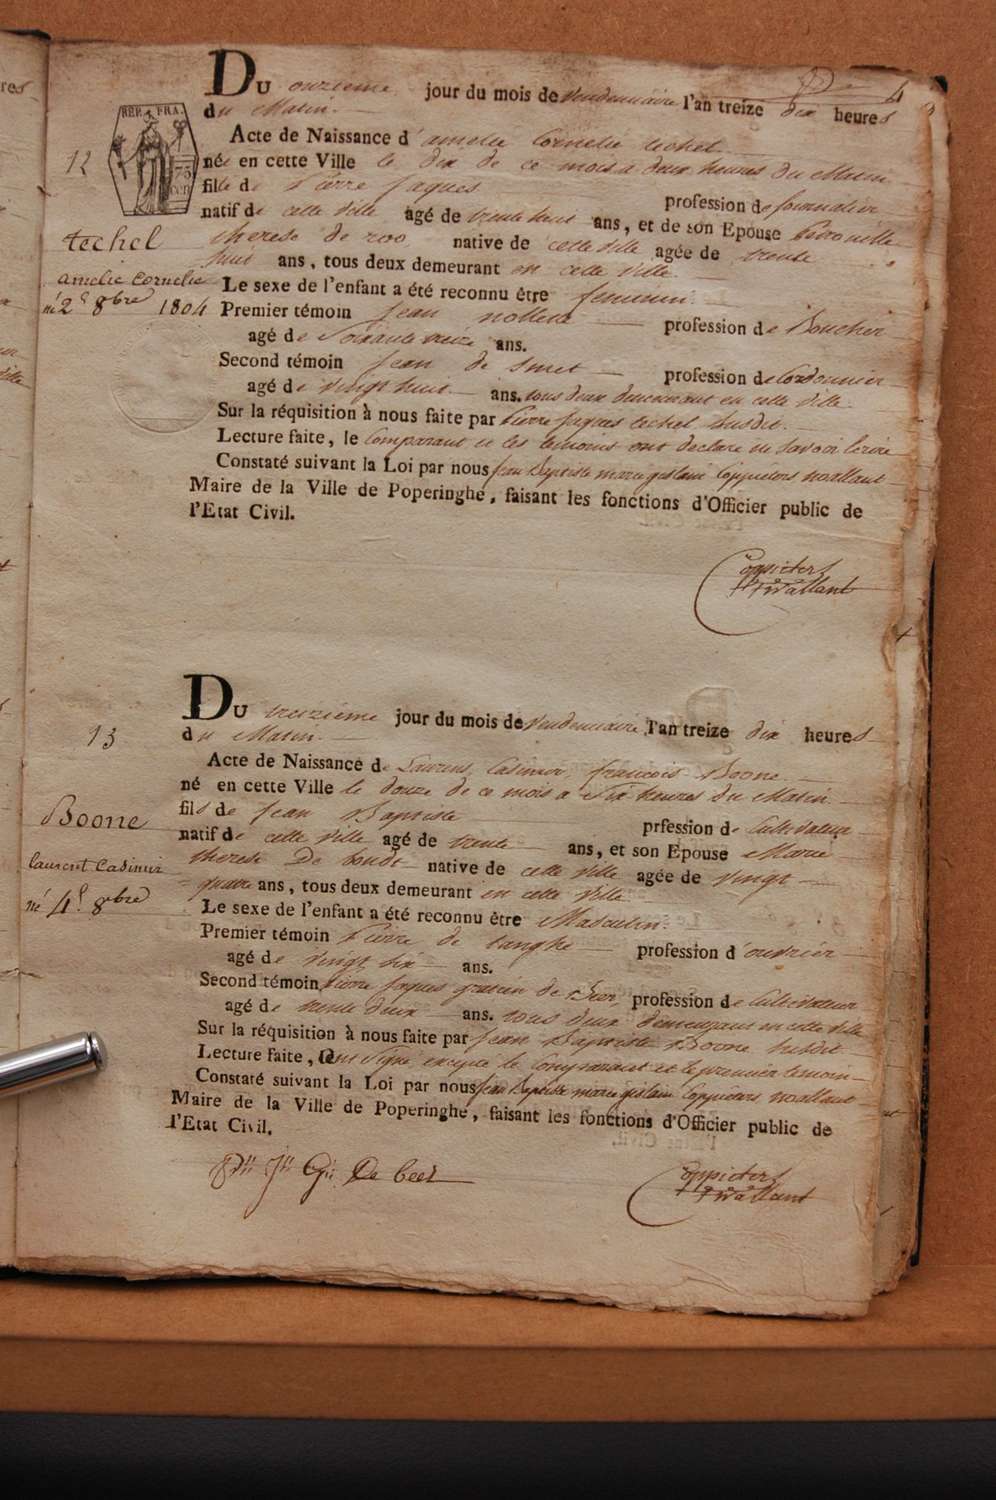 4
REP. FRA.
75
cen
12
Du onzieme jour du mois de Vendemiaire l'an treize dix heures
du Matin.
Acte de Naissance d'amelie Cornelie techel
née en cette Ville le dix de ce mois a deux heures du Matin
fille de Pierre Jaques profession de Journalier
natif de cette ville agé de trente huit ans, et de son Epouse Petronille
therese de roo native de cette ville agée de trente
huit ans, tous deux demeurant en cette Ville
techel
amelie Cornelie
né 2 8bre 1804
Le sexe de l'enfant a été reconnu être feminin.
Premier témoin Jean profession de Boucher
agé de Soixante treize ans.
Second témoin Jean de Smet profession de Cordonnier
agé de vingt huit ans. tous deux demeurant en cette Ville
Sur la réquisition à nous faite par Pierre Jaques techel susdit.
Lecture faite, le Comparant et les temoins ont declaré ne savoir écrire
Constaté suivant la Loi par nous Jean Baptiste marie gislain Coppieters wallant
Maire de la Ville de Poperinghe, faisant les fonctions d'Officier public de
l'Etat Civil.
Coppieters
wallant
13
Du treizieme jour du mois de Vendemiaire l'an treize dix heures
du Matin.
Acte de Naissance de Laurens Casimir francois Boone
né en cette Ville le douze de ce mois a Six heures du Matin
fils de Jean Baptiste prfession de Cultivateur
natif de cette ville agé de trente ans, et son Epouse Marie
therese De bondt native de cette ville agée de vingt
quatre ans, tous deux demeurant en cette Ville
Boone
laurent Casimir
né 4 8bre
Le sexe de l'enfant a été reconnu être Masculin.
Premier témoin Pierre de tanghe profession d'ouvrier
agé de vingt six ans.
Second témoin Pierre Jaques de Beer profession de Cultivateur
agé de trente deux ans. tous deux demeurant en cette ville
Sur la réquisition à nous faite par Jean Baptiste Boone susdit
Lecture faite, Ont Signé excepté le Comparant et le premier temoin
Constaté suivant la Loi par nous Jean Baptiste marie gislain Coppieters wallant
Maire de la Ville de Poperinghe, faisant les fonctions d'Officier public de
l'Etat Civil.
De beer
Coppieters
wallant